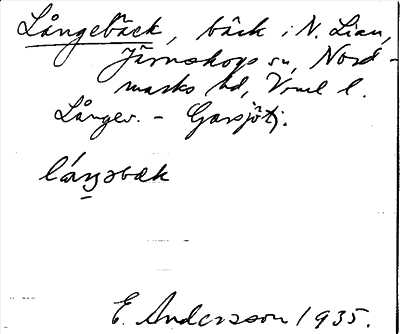 Långebäck, bäck i N. Lian,
Järnskogs sn, Nord-
marks hd, Vrml l.
Långev. - Gransjötj.
lá̀ŋəbæk
E. Andersson 1935.